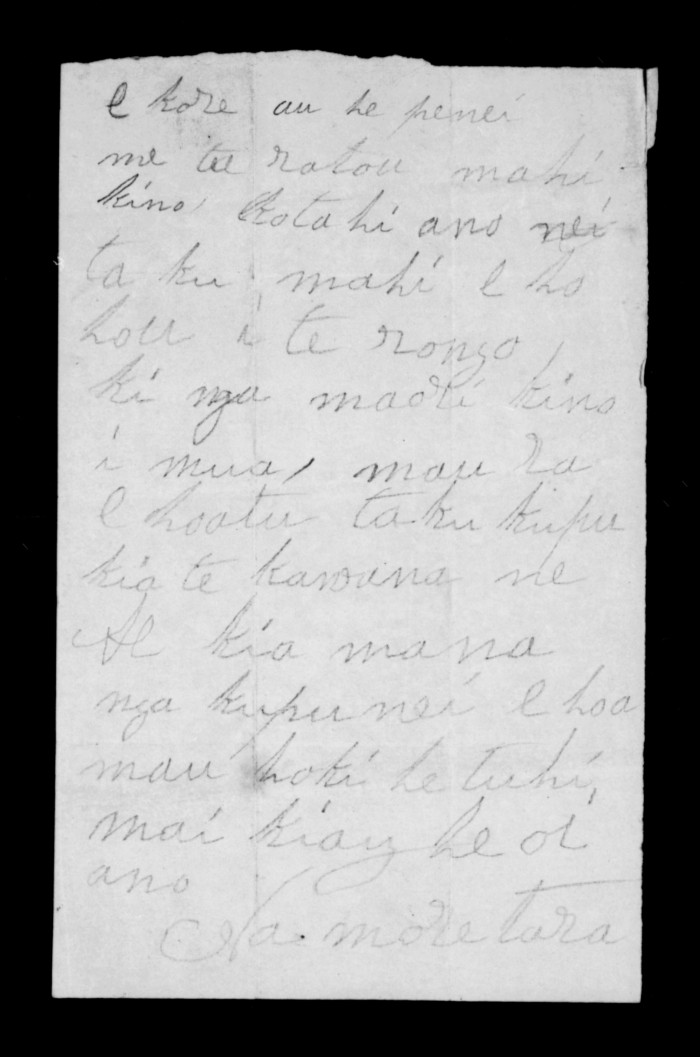 e kore au he penei
me ta ratou mahi
kino kotahi ano nei
ta ku mahi e ho
hou i te rongo,
ki nga maori kino
i mua, mau ra
e hoatu taku kupu
kia te kawana ne
Ae kia mana
nga kupu nei e hoa
mau hoki he tuhi,
mai kiau he oi
ano
Na moretara